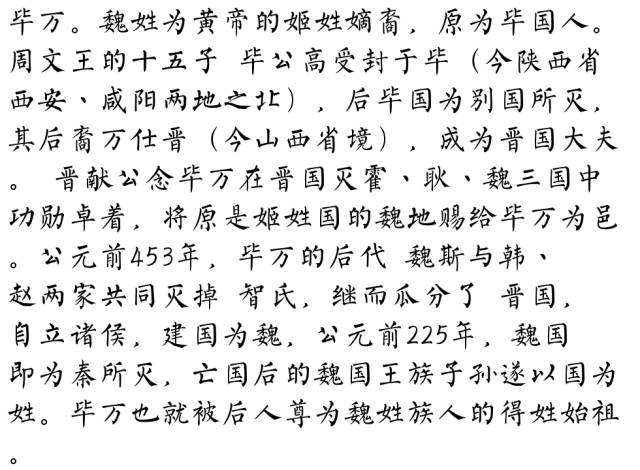 毕万。魏姓为黄帝的姬姓嫡裔，原为毕国人。
周文王的十五子 毕公高受封于毕（今陕西省
西安、咸阳两地之北），后毕国为别国所灭，
其后裔万仕晋（今山西省境），成为晋国大夫
。 晋献公念毕万在晋国灭霍、耿、魏三国中
功勋卓着，将原是姬姓国的魏地赐给毕万为邑
。公元前453年，毕万的后代 魏斯与韩、
赵两家共同灭掉 智氏，继而瓜分了 晋国，
自立诸侯，建国为魏，公元前225年，魏国
即为秦所灭，亡国后的魏国王族子孙遂以国为
姓。毕万也就被后人尊为魏姓族人的得姓始祖
。